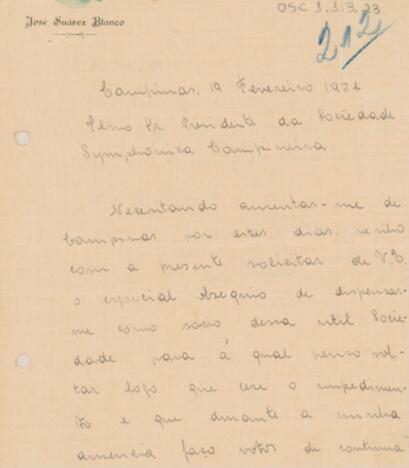 OSC 1.1.3.23
212
José Suárez Blanco
Campinas, 19 Fevereiro 1931
Illmo Sr Presidente da Sociedade
Symphonica Campineira.
Necesitando ausentar-me de
Campinas por estes dias, venho
com a presente solicitar de V.S.
o especial obsequio de dispensar-
me como socio dessa util Socie-
dade para á qual penso vol-
tar logo que cese o impedimen-
to e que durante a minha
ausencia faço votos de continua